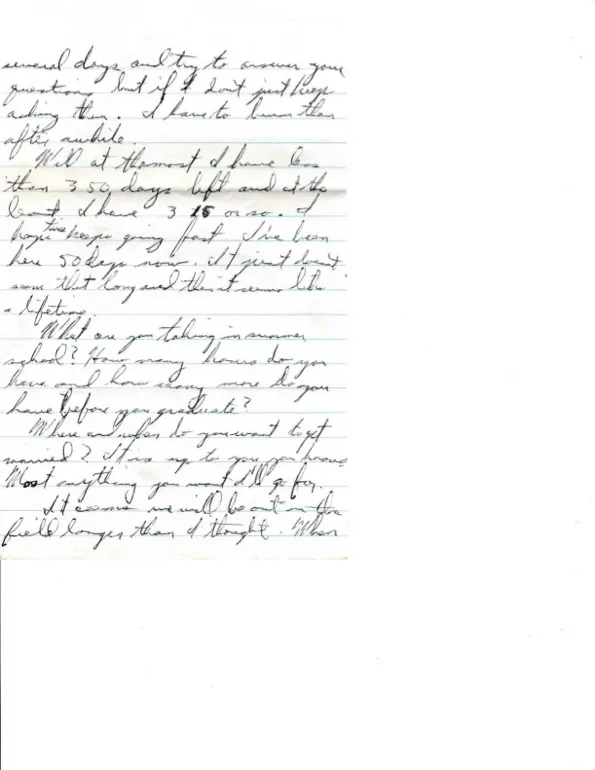 several days and try to answer your
questions but if I don't just keep
asking them. I have to burn them
after awhile.
Well at the most I have less
than 350 days left and at the
least I have 315 or so. I
hope time keeps going fast I've been
here 50 days now. It just doesn't
seem that long and then it seems like
a lifetime.
What are you taking in summer
school? How many hours do you
have and how many more do you
have before you graduate?
Where and when do you want to get
married? It is up to you you know
Most anything you want I'll go for.
It seems we will be out in the
field longer than I thought. When